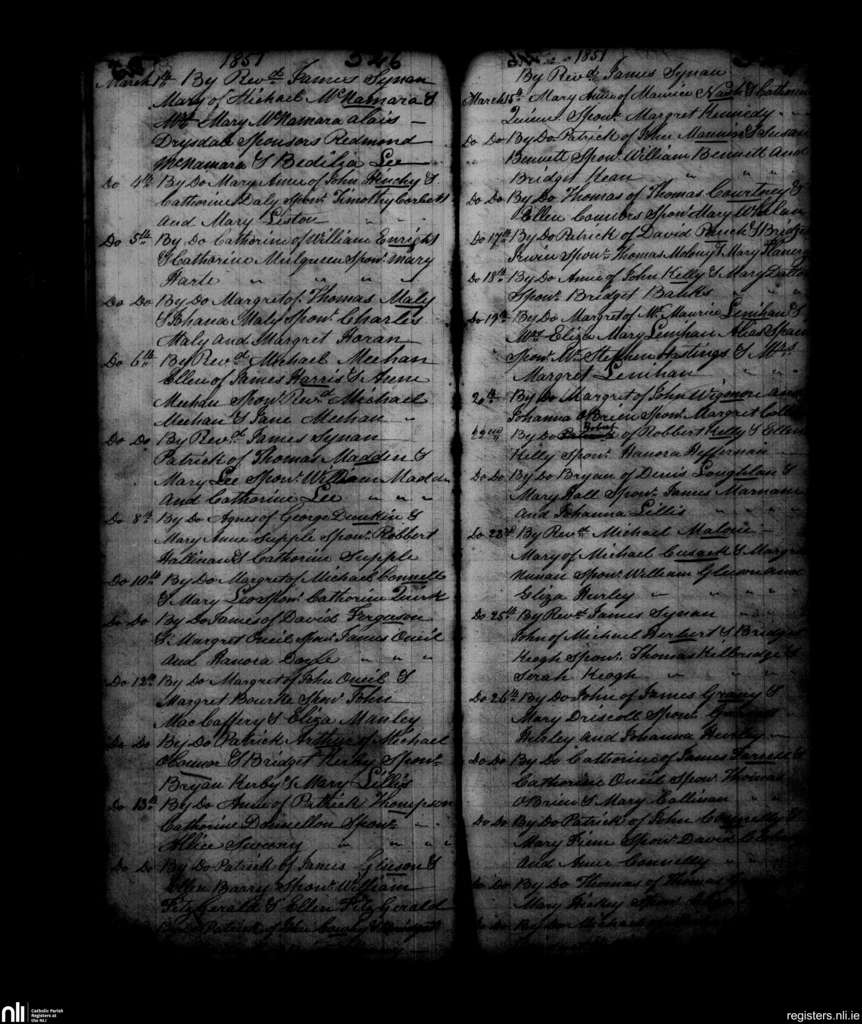 1851 346
March 1st By Revd. James Synan
Mary of Michael McNamara &
Mrs Mary McNamara alais
Drysdale Sponsors Redmond
McNamara & Bedilia Lee
Do 4th By Do Mary Anne of John &
Catherine Daly Sponr. Timothy Corbett
and Mary Liston " "
Do 5th By Do Catherine of William Enright
& Catherine Mulqueen Sponr. Mary
Harte " " "
Do Do By Do Margret of Thomas Maly
& Johana Maly Sponr. Charles
Maly and Margret Horan
Do 6th By Revd. Michael Meehan
Ellen of James Harris & Anne
Meehan Sponr. Revd. Michael
Meehan & Jane Meehan "
Do Do By Revd. James Synan
Patrick of Thomas Madden &
Mary Lee Sponr. William Madden
and Catherine Lee " " "
Do 8th By Do Agnes of George Dunkin &
Mary Anne Supple Sponr. Robbert
Hallinan & Catherine Supple
Do 10th By Do Margret of Michael Connell
& Mary Leo Sponr. Catherine Quirk
Do Do By Do James of David Ferguson
& Margret Oneil Sponr. James Oneil
and Hanora Doyle " " "
Do 12th By Do Margret of John Oneil &
Margret Bourke Sponr. John
MacCaffery & Eliza Manley
Do Do By Do Patrick Arthur of Michael
OConnor & Bridget Kerby Sponr.
Bryan Kerby & Mary Lillis
Do 13th By Do Anne of Patrick Thompson
Catherine Sponr. "
Allice Sweeny " " "
Do Do By Do Patrick of James Gleeson &
Ellen Barry Sponr. William
FitzGerald & Ellen FitzGerald
By Do Patrick of John & Bridget
1851
By Revd. James Synan
March 15th Mary Anne of Maurice Nash & Catherine
Quinn Sponr. Margret Kennedy
Do Do By Do Patrick of John Mannix & Susan
Bennett Sponr. William Bennett and
Bridget Kean " " "
Do Do By Do Thomas of Thomas Courtney &
Ellen Connors Sponr. Mary Whelan
Do 17th By Do Patrick of David & Bridget
Kirwin Sponr. Thomas Malony & Mary
Do 18th By Do Anne of John Kelly & Mary
Sponr. Bridget Banks " "
Do 19th By Do Margret of Mr. Maurice Lenihan &
Mrs. Eliza Mary Lenihan Alias Spain
Sponr. Mr. Stephen Hastings & Mrs.
Margret Lenihan " "
20th By Do Margret of John Wigmore and
Johanna OBrien Sponr. Margret
22nd By Do Robert of Robbert Kelly & Ellen
Kelly Sponr. Hanora Heffernan
Do Do By Do Bryan of Denis Loughlan &
Mary Hall Sponr. James Marnane
and Johanna Lillis " "
Do 23rd By Revd. Michael Malone
Mary of Michael Cusack & Margret
Nunan Sponr. William Gleeson and
Eliza Hurley " "
Do 25th By Revd. James Synan
John of Michael Herbert & Bridget
Keogh Sponr. Thomas Kilbridge &
Sarah Keogh " "
Do 26th By Do John of James Grany &
Mary Driscoll Sponr.
Hurley and Johanna Hurley
Do Do By Do Catherine of James Farrell &
Catherine Oneil Sponr. Thomas
OBrien & Mary Callinan "
Do Do By Do Patrick of John Connelly &
Mary Sponr. David
and Anne Connelly " "
Do Do By Do Thomas of Thomas
Mary Hickey Sponr.
By Do Michael
nli
Catholic Parish
Registers at
the NLI
registers.nli.ie